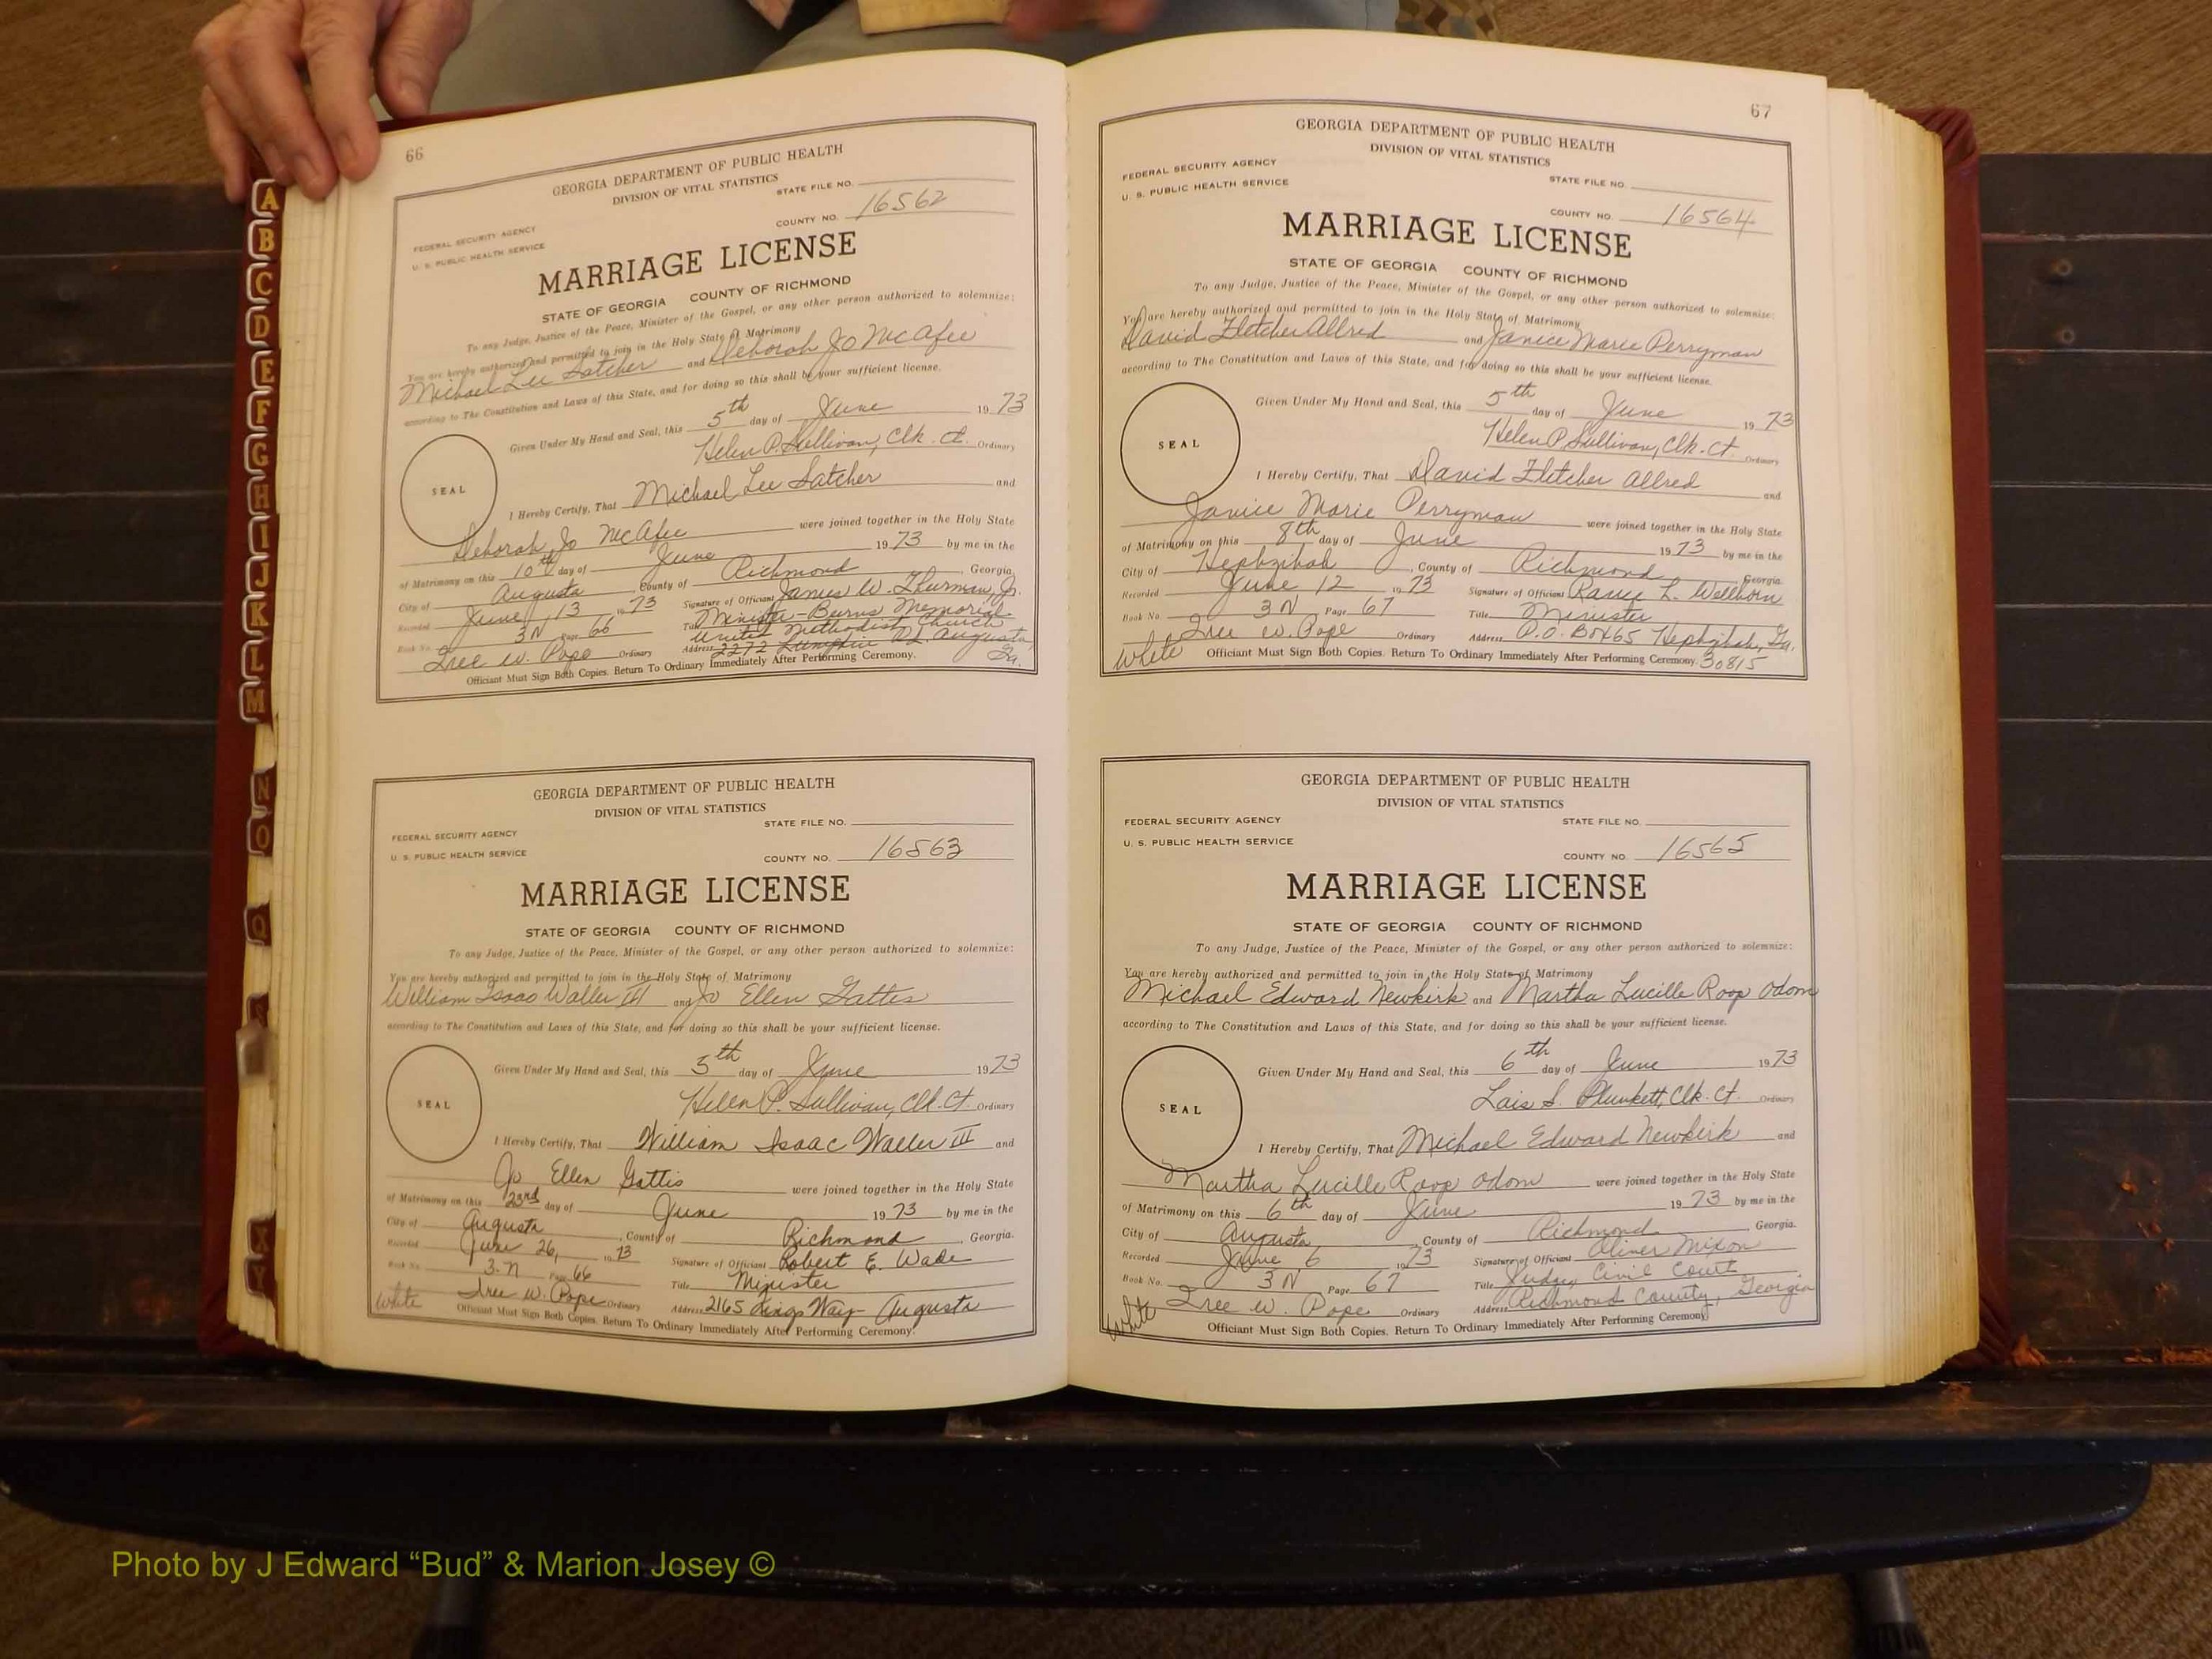 66
GEORGIA DEPARTMENT OF PUBLIC HEALTH
DIVISION OF VITAL STATISTICS
STATE FILE NO.
COUNTY NO. 16562
FEDERAL SECURITY AGENCY
U. S. PUBLIC HEALTH SERVICE
MARRIAGE LICENSE
STATE OF GEORGIA COUNTY OF RICHMOND
To any Judge, Justice of the Peace, Minister of the Gospel, or any other person authorized to solemnize:
You are hereby authorized and permitted to join in the Holy State of Matrimony
Michael Lee Satcher and Deborah Jo McAfee
according to The Constitution and Laws of this State, and for doing so this shall be your sufficient license.
Given Under My Hand and Seal, this 5th day of June 1973
Helen P. Sullivan, Clk. Ct. Ordinary
SEAL
I Hereby Certify, That Michael Lee Satcher and
Deborah Jo McAfee were joined together in the Holy State
of Matrimony on this 10th day of June 1973 by me in the
City of Augusta, County of Richmond, Georgia.
Recorded June 13 1973 Signature of Officiant James W. Thurman, Jr.
Book No. 3N Page 66 Title Minister-Burns Memorial
United Methodist Church
Iree W. Pope Ordinary Address 2272 Lumpkin Rd. Augusta, Ga.
Officiant Must Sign Both Copies. Return To Ordinary Immediately After Performing Ceremony.
GEORGIA DEPARTMENT OF PUBLIC HEALTH
DIVISION OF VITAL STATISTICS
STATE FILE NO.
FEDERAL SECURITY AGENCY
U. S. PUBLIC HEALTH SERVICE
COUNTY NO. 16563
MARRIAGE LICENSE
STATE OF GEORGIA COUNTY OF RICHMOND
To any Judge, Justice of the Peace, Minister of the Gospel, or any other person authorized to solemnize:
You are hereby authorized and permitted to join in the Holy State of Matrimony
William Isaac Waller III and Jo Ellen Gattis
according to The Constitution and Laws of this State, and for doing so this shall be your sufficient license.
Given Under My Hand and Seal, this 5th day of June 1973
Helen P. Sullivan, Clk. Ct. Ordinary
SEAL
I Hereby Certify, That William Isaac Waller III and
Jo Ellen Gattis were joined together in the Holy State
of Matrimony on this 23rd day of June 1973 by me in the
City of Augusta, County of Richmond, Georgia.
Recorded June 26, 1973 Signature of Officiant Robert E. Wade
Book No. 3-N Page 66 Title Minister
Iree W. Pope Ordinary Address 2165 Kings Way Augusta
White Officiant Must Sign Both Copies. Return To Ordinary Immediately After Performing Ceremony.
67
GEORGIA DEPARTMENT OF PUBLIC HEALTH
DIVISION OF VITAL STATISTICS
FEDERAL SECURITY AGENCY
U. S. PUBLIC HEALTH SERVICE
STATE FILE NO.
COUNTY NO. 16564
MARRIAGE LICENSE
STATE OF GEORGIA COUNTY OF RICHMOND
To any Judge, Justice of the Peace, Minister of the Gospel, or any other person authorized to solemnize:
You are hereby authorized and permitted to join in the Holy State of Matrimony
David Fletcher Allred and Janice Marie Perryman
according to The Constitution and Laws of this State, and for doing so this shall be your sufficient license.
Given Under My Hand and Seal, this 5th day of June 1973
Helen P. Sullivan, Clk. Ct. Ordinary
SEAL
I Hereby Certify, That David Fletcher Allred and
Janice Marie Perryman were joined together in the Holy State
of Matrimony on this 8th day of June 1973 by me in the
City of Hephzibah, County of Richmond, Georgia.
Recorded June 12 1973 Signature of Officiant L. Wellborn
Book No. 3N Page 67 Title Minister
Iree W. Pope Ordinary Address P.O. Box 65 Hephzibah, Ga.
White Officiant Must Sign Both Copies. Return To Ordinary Immediately After Performing Ceremony. 30815
GEORGIA DEPARTMENT OF PUBLIC HEALTH
DIVISION OF VITAL STATISTICS
FEDERAL SECURITY AGENCY
STATE FILE NO.
U. S. PUBLIC HEALTH SERVICE
COUNTY NO. 16565
MARRIAGE LICENSE
STATE OF GEORGIA COUNTY OF RICHMOND
To any Judge, Justice of the Peace, Minister of the Gospel, or any other person authorized to solemnize:
You are hereby authorized and permitted to join in the Holy State of Matrimony
Michael Edward Newkirk and Martha Lucille Roop Odom
according to The Constitution and Laws of this State, and for doing so this shall be your sufficient license.
Given Under My Hand and Seal, this 6th day of June 1973
Lois S. Plunkett, Clk. Ct. Ordinary
SEAL
I Hereby Certify, That Michael Edward Newkirk and
Martha Lucille Roop Odom were joined together in the Holy State
of Matrimony on this 6th day of June 1973 by me in the
City of Augusta, County of Richmond, Georgia.
Recorded June 6 1973 Signature of Officiant Oliver Mixon
Book No. 3N Page 67 Title Judge, Civil Court
Iree W. Pope Ordinary Address Richmond County, Georgia
White Officiant Must Sign Both Copies. Return To Ordinary Immediately After Performing Ceremony
A
B
C
D
E
F
G
H
I
J
K
L
M
N
O
Q
S
X
Y
Photo by J Edward “Bud” & Marion Josey ©